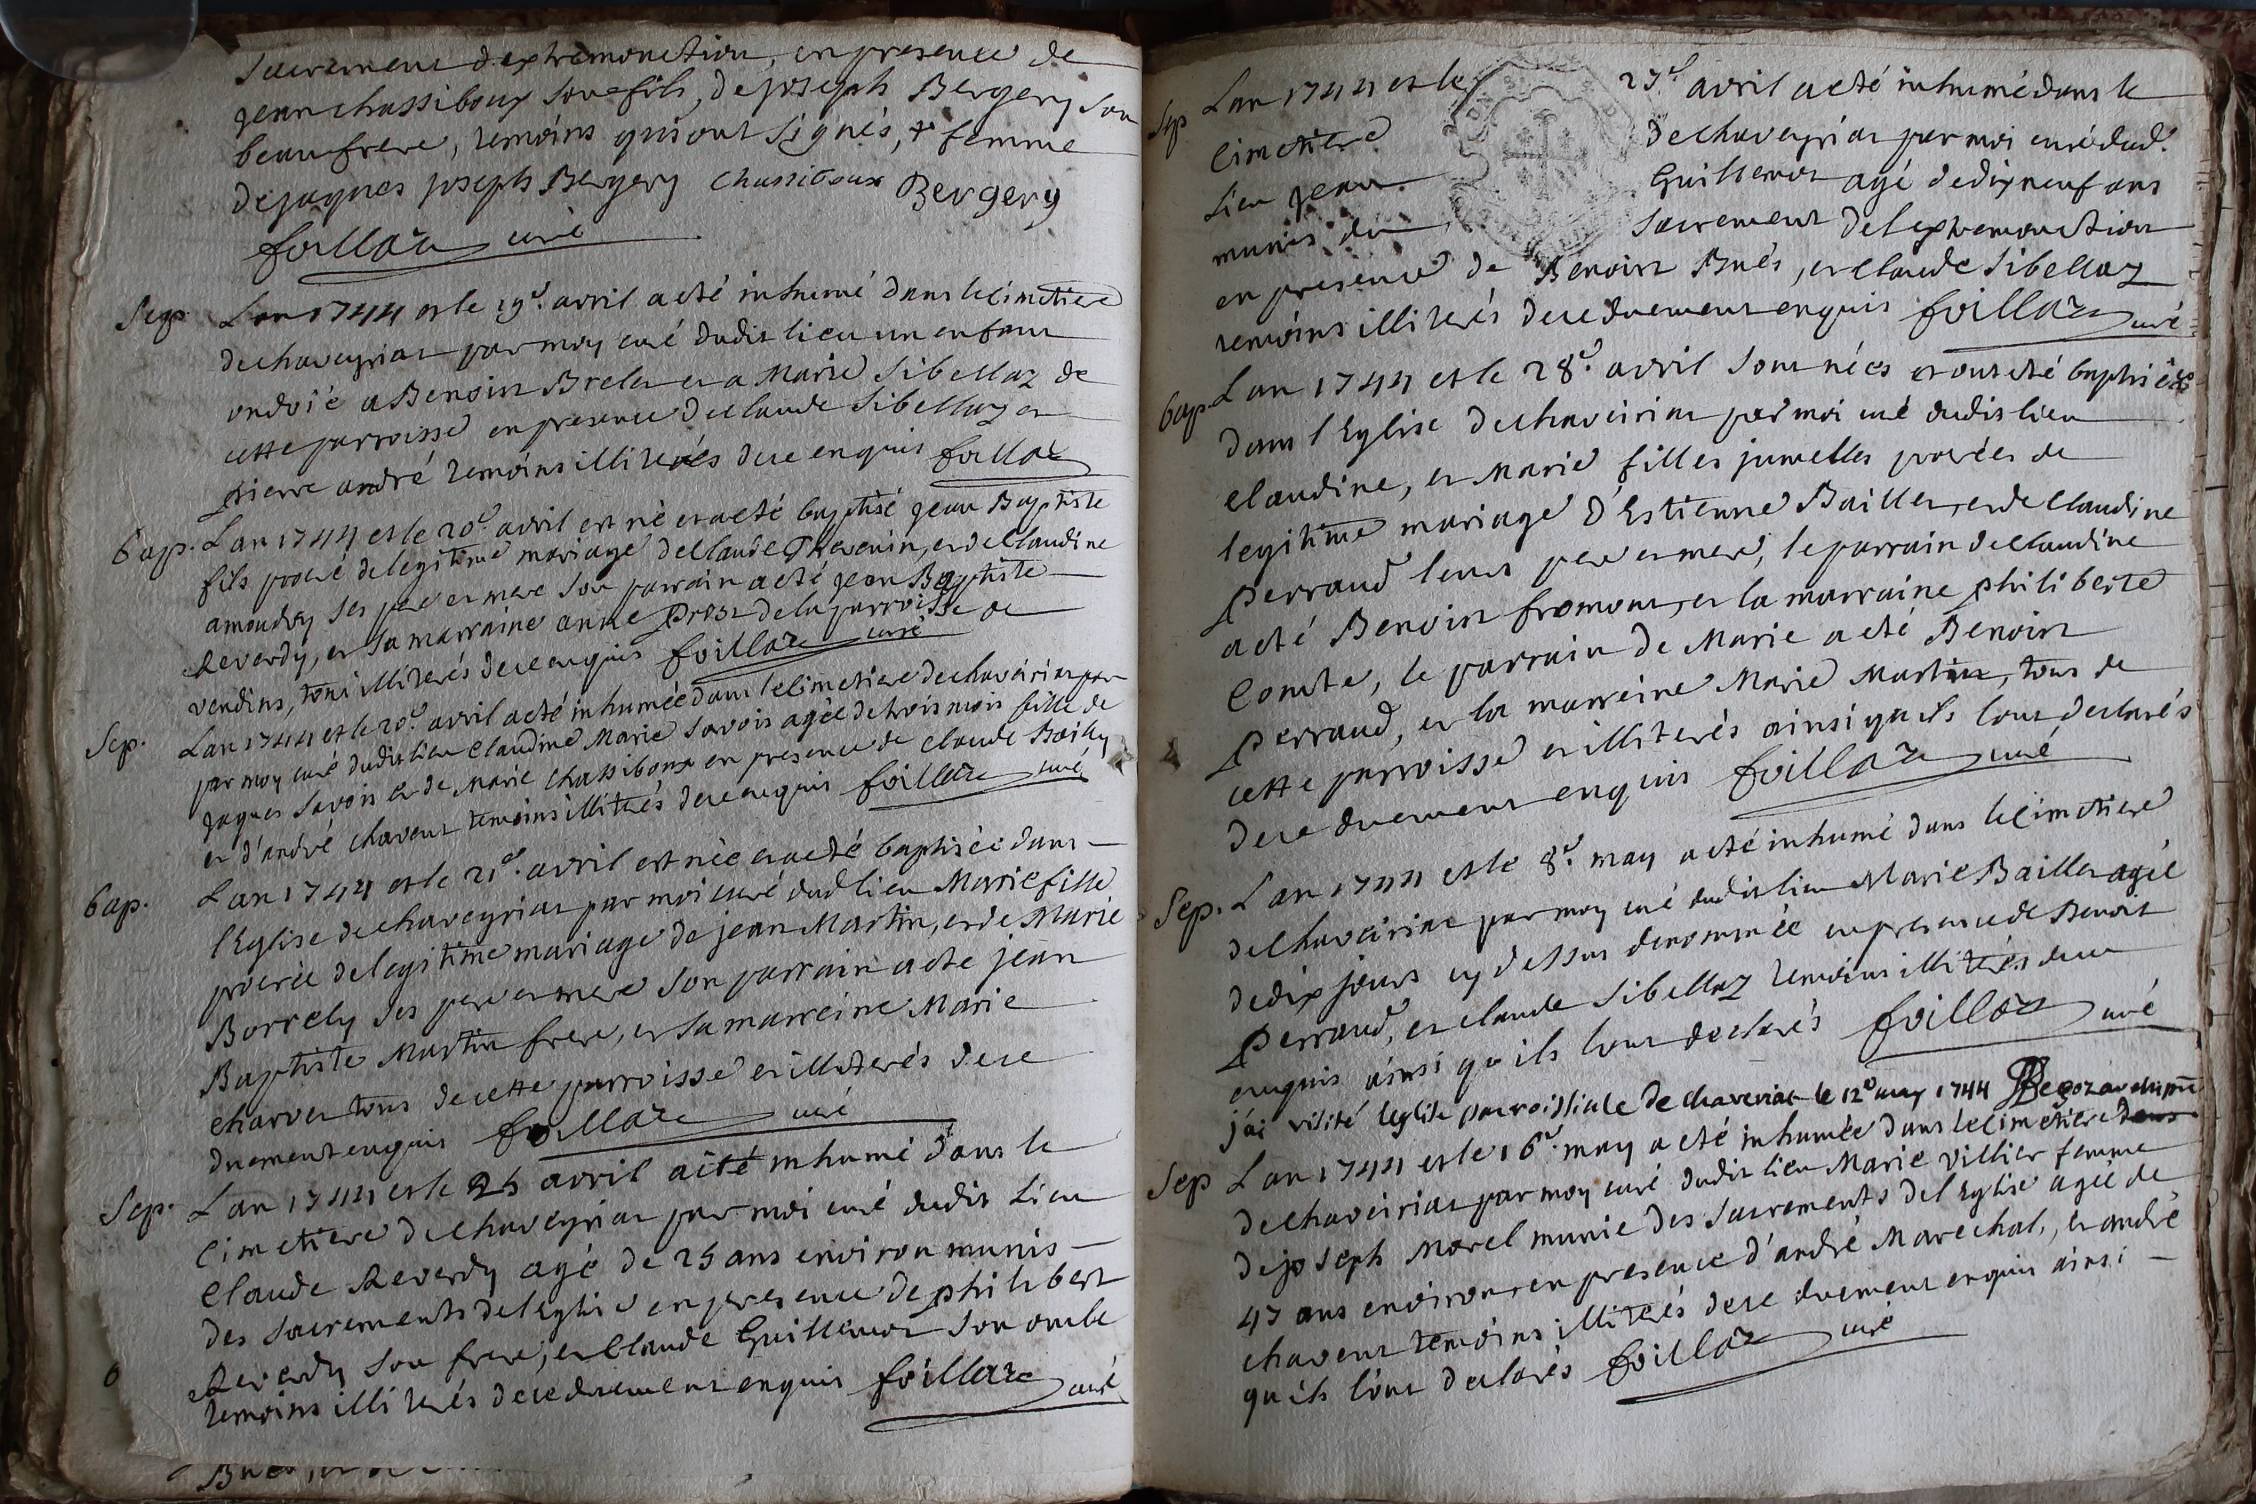 sacrement d'extremonction, en presence de
jean chassiboux son fils, de joseph Bergery son
beaufrere, temoins qui ont signés, + femme
de jaques joseph Bergery chassiboux Bergery
foillaz curé
Sep. Lan 1744 et le 19e avril a eté inhumé dans le cimetiere
de chaveyriat par moy curé dudit lieu un enfant
ondoié a Benoit Brelet et a Marie Sibellaz de
cette parroisse en presence de claude Sibellaz et
pierre andré temoins illiterés de ce enquis foillaz
bap. Lan 1744 et le 20e avril est né et a eté baptisé jean Baptiste
fils procréé de legitime mariage de Claude Thevenin, et de Claudine
amoudry ses pere et mere son parrain a eté jean Baptiste
Reverdy, et sa marraine anne Prost de la parroisse de
vendins, tous illiterés de ce enquis foillaz curé
Sep. Lan 1744 et le 20e avril a eté inhumée dans le cimetiere de chaveiriat par
par moy curé dudit lieu claudine Marie Savois agée de trois mois fille de
jaques Savois et de Marie chassiboux en presence de claude Bailly
et d'andré chavent temoins illiterés de ce enquis foillaz curé
bap. Lan 1744 et le 21e avril est née et a eté baptisée dans
l'Eglise de chaveyriat par moi curé dud lieu Marie fille
procréée de legitime mariage de jean Martin, et de Marie
Borrely ses pere et mere son parrain a eté jean
Baptiste Martin frere, et sa marreine Marie
charvet tous de cette parroisse et illiterés de ce
duement enquis foillaz curé
Sep. Lan 1744 et le 25 avril a eté inhumé dans le
cimetiere de chaveyriat par moi curé dudit lieu
Claude Reverdy agé de 25 ans environ munis
des sacrements de l'Eglise en presence de philibert
Reverdy son frere, et Claude Guillemot son oncle
temoins illiterés de ce duement enquis foillaz curé
Sep Lan 1744 et le 27e avril a eté inhumé dans le
cimetiere de chaveyriat par moi curé dud.
lieu jean Guillemot agé de dix neuf ans
munis du sacrement de l'extremonction
en presence de Benoit Bués, et claude Sibellaz
temoins illiterés de ce duement enquis foillaz curé
bap. Lan 1744 et le 28e avril sont nées et ont eté baptisées
dans l'Eglise de chaveiriat par moi curé dudit lieu
claudine, et Marie filles jumelles procréés de
legitime mariage d'Estienne Baillet, et de Claudine
Perraud leurs pere et mere, le parrain de Claudine
a eté Benoit fromont, et la marraine philiberte
Comte, le parrain de Marie a eté Benoit
Perraud, et la marreine Marie Martin, tous de
cette parroisse et illiterés ainsi qu'ils l'ont declarés
de ce duement enquis foillaz curé
Sep. Lan 1744 et le 8e may a eté inhumé dans le cimetiere
de chaveiriat par moy curé dudit lieu Marie Baillet agée
de dix jours cy dessus denommée en presence de Benoit
Perraud, et claude Sibellaz temoins illiterés de ce
enquis ainsi qu'ils l'ont declarés foillaz curé
j'ai visité l'eglise parroissiale de chaveriat le 12e may 1744
Sep Lan 1744 et le 16e may a eté inhumée dans le cimetiere dans
de chaveiriat par moy curé dudit lieu Marie villier femme
de joseph Morel munie des sacrements de l'Eglise agée de
47 ans environ en presence d'andré Marechal, et andré
chavent temoins illiterés de ce duement enquis ainsi
qu'ils l'ont declarés foillaz curé